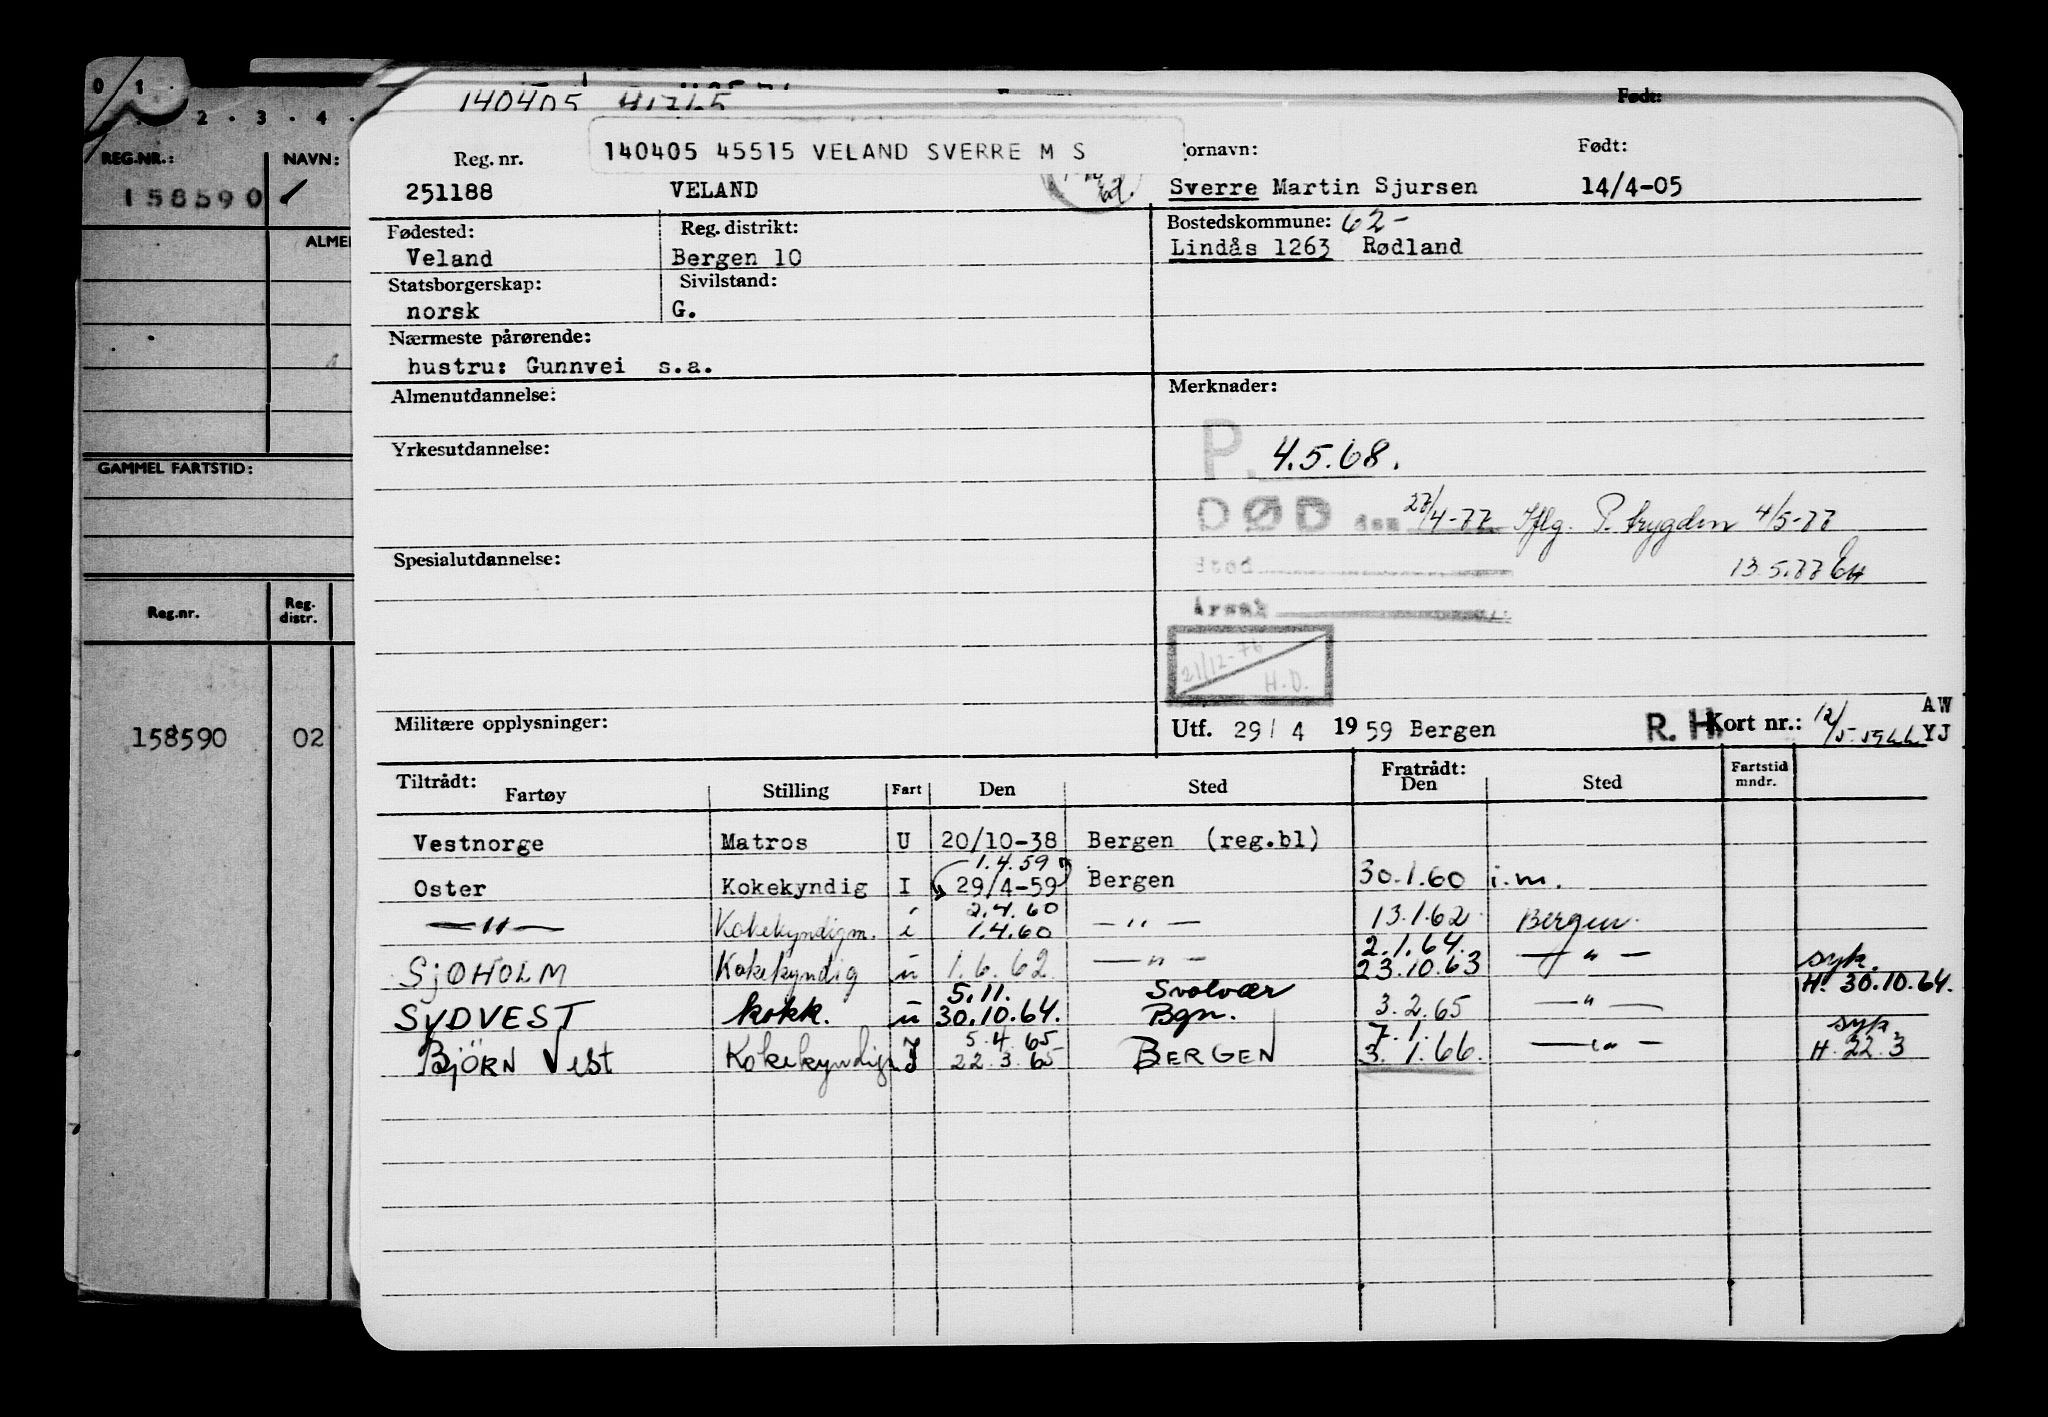 0 1 .
. 2 . 3 . 4 .
REG.NR.: NAVN:
158590
GAMMEL FARTSTID:
Reg.nr. Reg. distr.
158590 02
140405
Født:
140405 45515 VELAND SVERRE M S
Reg. nr. ornavn: Født:
251188 VELAND Sverre Martin Sjursen 14/4-05
Fødested: Reg. distrikt: Bostedskommune: 62-
Veland Bergen 10 Lindås 1263 Rødland
Statsborgerskap: Sivilstand:
norsk G.
Nærmeste pårørende:
hustru: Gunnvei s.a.
Almenutdannelse: Merknader:
Yrkesutdannelse: P. 4.5.68.
DØD den 27/4-77 Iflg. P. trygden 4/5-77
Spesialutdannelse: Sted 13.5.77
Årsak
21/12-76
H.D.
Militære opplysninger: Utf. 29/4 1959 Bergen R.H. Kort nr.: AW
YJ
Tiltrådt: Fratrådt:
Fartøy Stilling Fart Den Sted Den Sted Fartstid mndr.
Vestnorge Matros U 20/10-38 Bergen (reg.bl)
1.4.59
Oster Kokekyndig I 29/4-59 Bergen 30.1.60 i.m.
2.4.60
—"— Kokekyndigm. i 1.4.60 —"— 13.1.62 Bergen.
2.1.64. syk.
SJØHOLM Kokekyndig u 1.6.62 —"— 23.10.63 —"— H. 30.10.64.
5.11. Svolvær
SYDVEST kokk. u 30.10.64. Bgn. 3.2.65 —"—
5.4.65 7.1. syk.
BJÖRN Vest Kokekyndig I 22.3.65 BERGEN 3.1.66. —"— H. 22.3